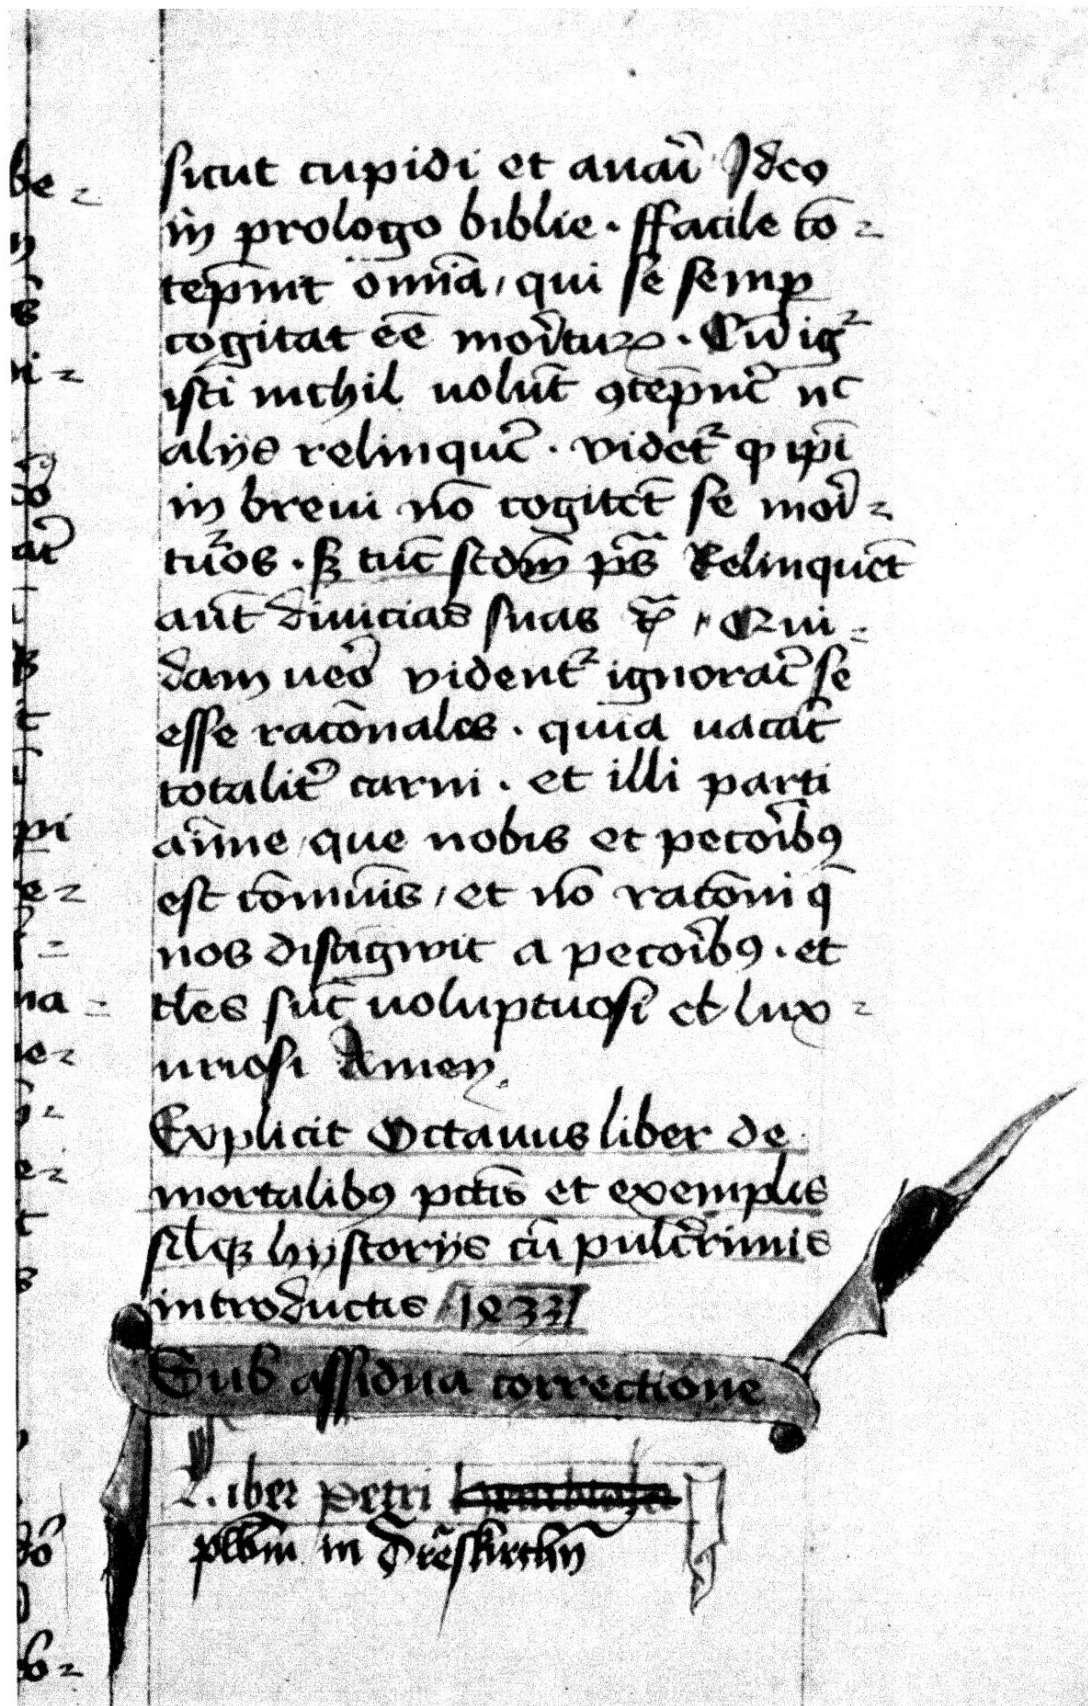 sicut cupidi et auari Ideo
in prologo biblie . ffacile cō =
tēpnit omnia / qui se semꝑ
cogitat eē moriturꝝ . Cū igr
isti nichil uolūt ꝯtēpnere nec
alijs relinquere . videtr ꝙ ipi
in breui nō cogitēt se mori =
turos . sꝫ tūc scdm ps Relinquēt
aūt diuicias suas ꝛc / Qui =
dam uero videntr ignorare se
esse racōnales . quia uacāt
totalitr carni . et illi parti
aīme que nobis et pecoribꝰ
est cōmunis / et nō racōni q̄
nos distīgwit a pecoribꝰ . et
tles sūt uoluptuosi et lux =
uriosi Amen
Explicit Octauus liber de
mortalibꝰ pctīs et exemplis
silqꝫ hystorijs cū pulcrimis
introductis 1433
Sub assidua correctione
Liber Petri
plbm in
be =
pi
e =
na =
e =